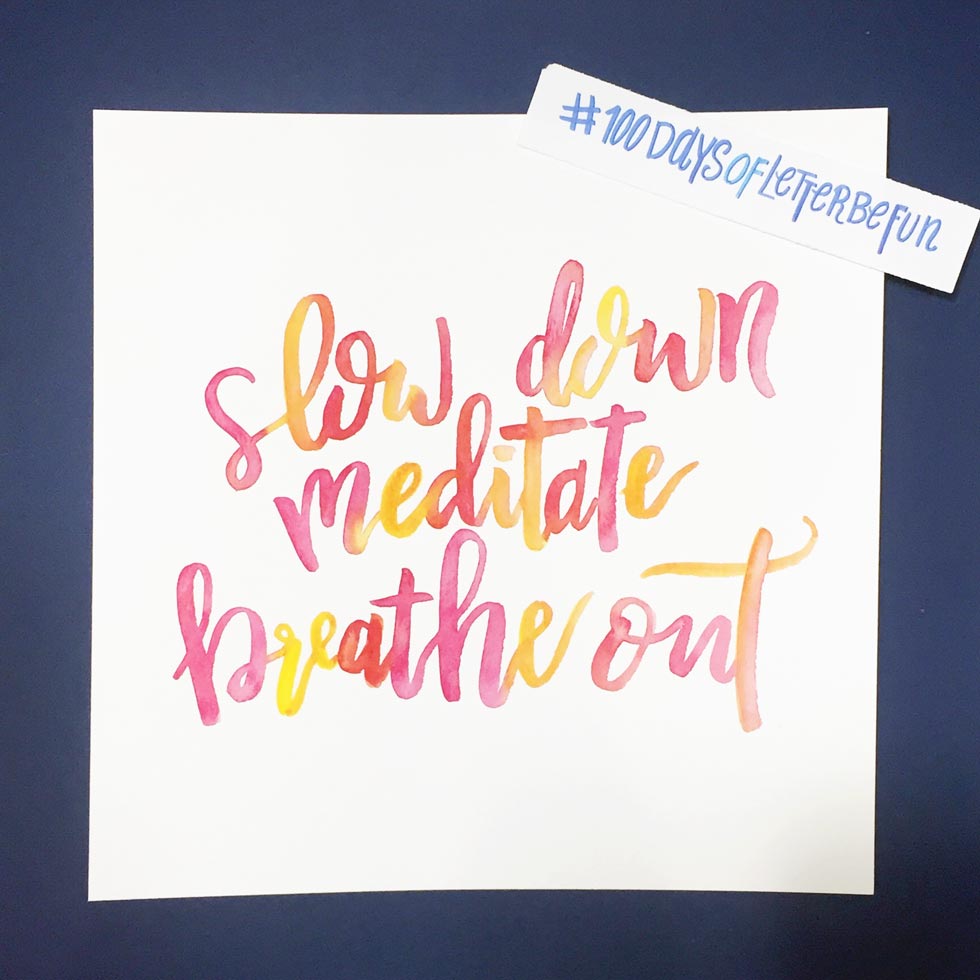 #100DaysofLetterBeFun
slow down
meditate
breathe out